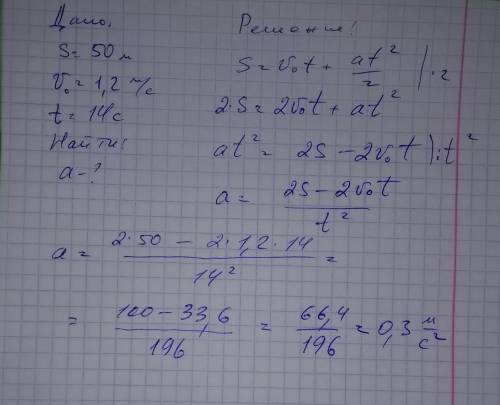 Дано:
S = 50 м
v₀ = 1,2 м/с
t = 14 с
Найти:
a - ?
Решение:
S = v₀t + at²/2 | · 2
2·S = 2v₀t + at²
at² = 2S − 2v₀t | : t²
a = (2S − 2v₀t)/t²
a = (2·50 − 2·1,2·14)/14² =
= (100 − 33,6)/196 = 66,4/196 = 0,3 м/с²